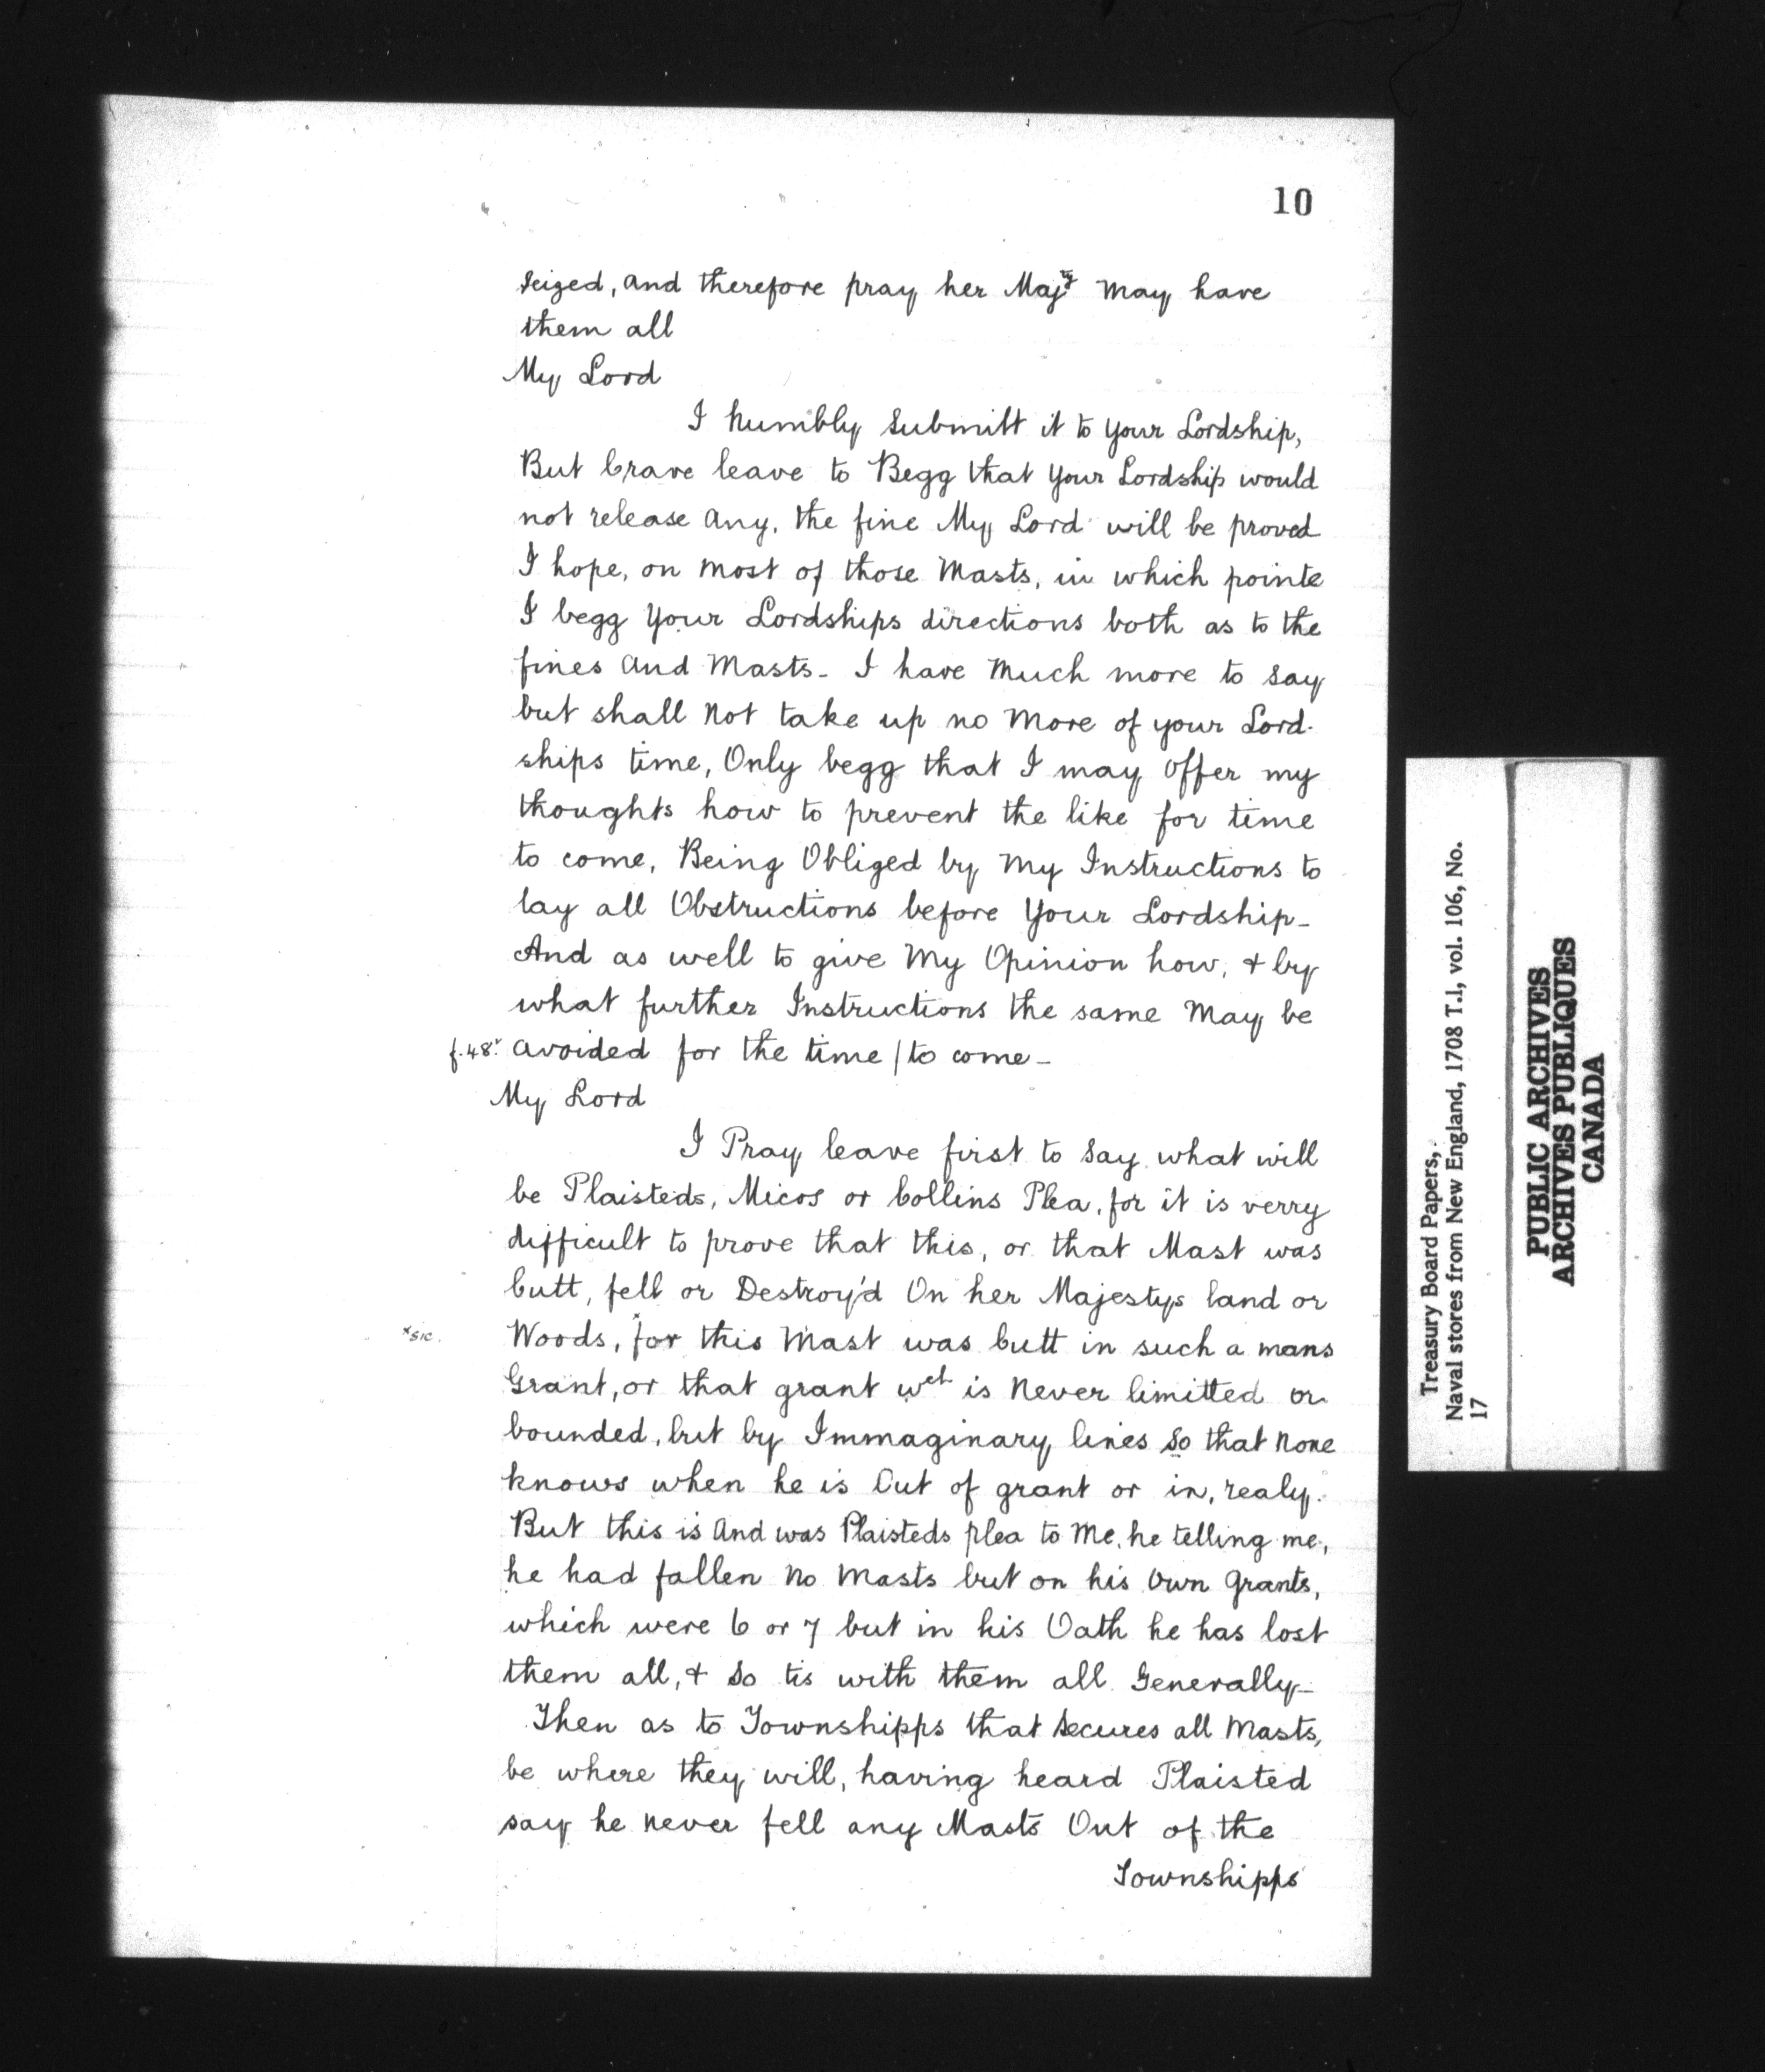 10
Seized, and therefore pray her Maj^ty may have
them all
My Lord
I humbly Submitt it to your Lordship,
But Crave leave to Begg that Your Lordship would
not release any, the fine My Lord will be proved
I hope, on most of those Masts, in which pointe
I begg Your Lordships directions both as to the
fines and Masts - I have Much more to say
but shall Not take up no More of your Lord-
ships time, Only begg that I may offer my
thoughts how to prevent the like for time
to come, Being Obliged by My Instructions to
lay all Obstructions before Your Lordship -
And as well to give My Opinion how, & by
what further Instructions the same May be
f.48^v. avoided for the time / to come -
My Lord
I Pray leave first to Say what will
be Plaisteds, Micos or Collins Plea, for it is verry
difficult to prove that this, or that Mast was
Cutt, fell or Destroy'd On her Majestys land or
*sic. Woods, *for this Mast was Cutt in such a mans
Grant, or that grant w^ch is Never limitted or
bounded, but by Immaginary lines So that None
knows when he is Out of grant or in, realy.
But this is And was Plaisteds plea to Me, he telling me,
he had fallen No Masts but on his Own Grants,
which were 6 or 7 but in his Oath he has lost
them all, & So tis with them all Generally -
Then as to Townshipps that Secures all Masts,
be where they will, having heard Plaisted
say he Never fell any Masts Out of the
Townshipps
Treasury Board Papers,
Naval stores from New England, 1708 T.1, vol. 106, No.
17
PUBLIC ARCHIVES
ARCHIVES PUBLIQUES
CANADA